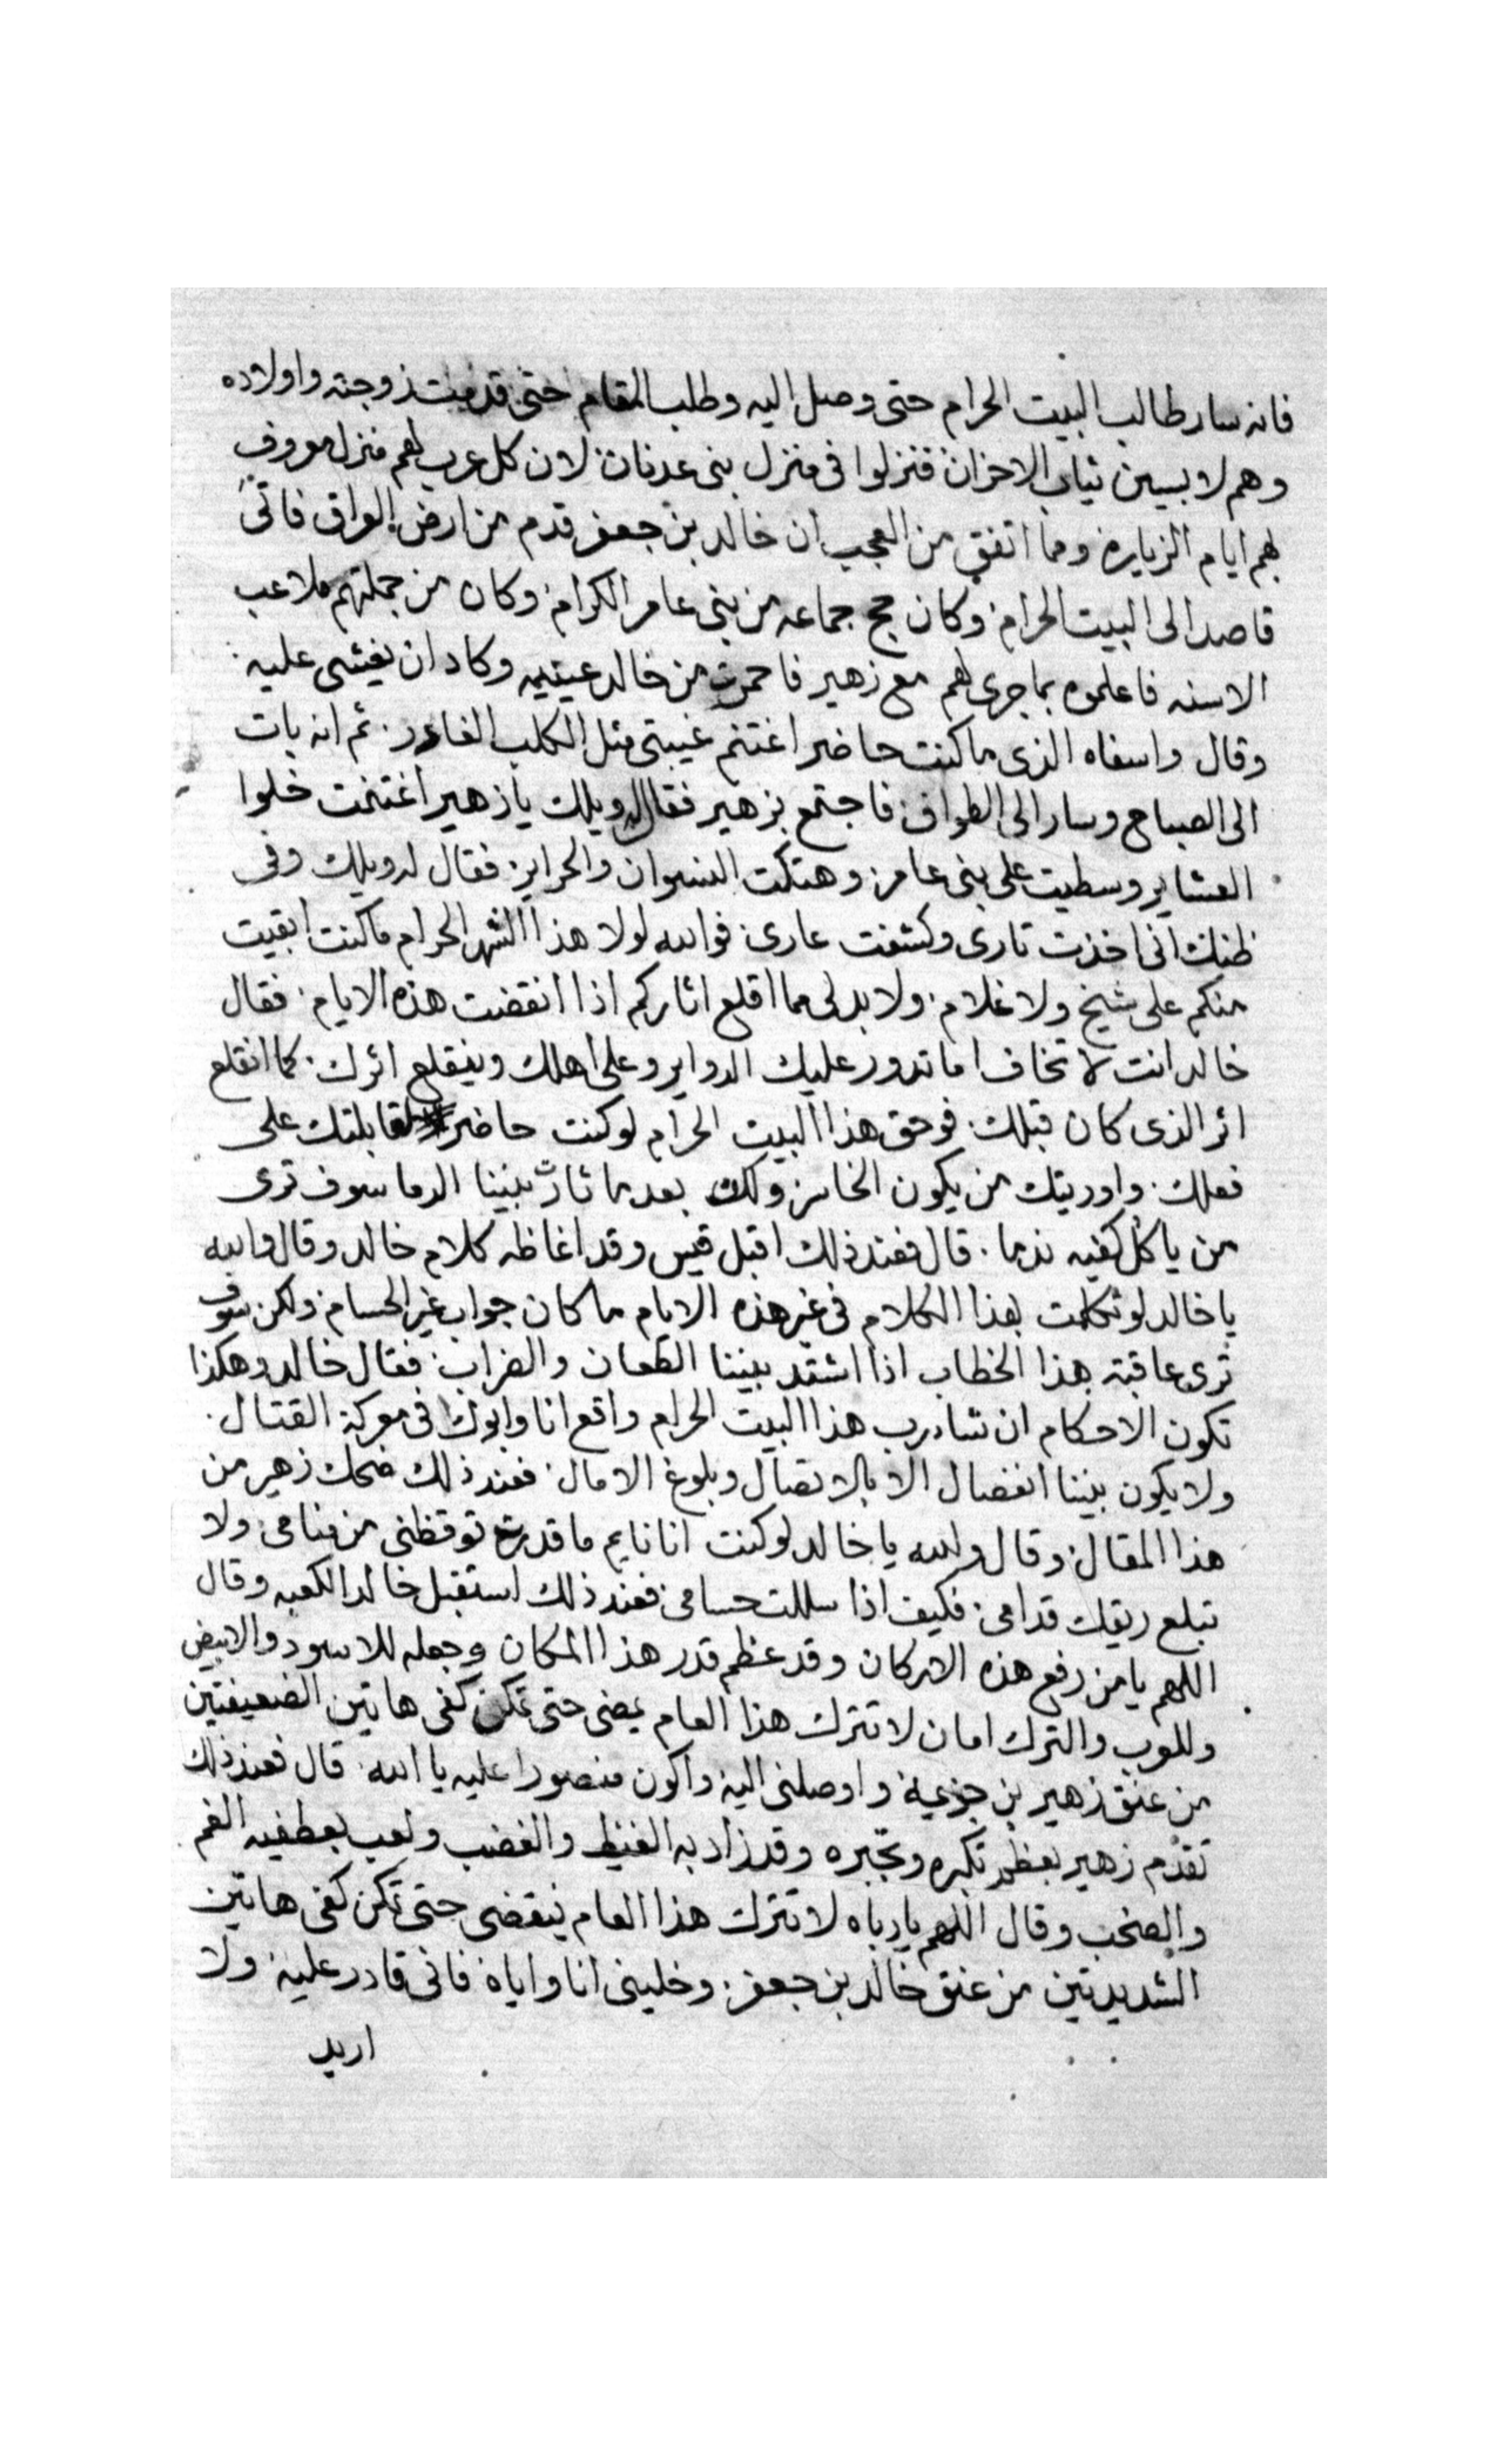 فانه سار طالب البيت الحرام حتى وصل اليه وطلب المقام حتى قدمت زوجته واولاده
وهم لابسين ثياب الاحزان فنزلوا فى منزل بنى عدنان لان كل عرب لهم منزل معروف
بهم ايام الزياره ومما اتفق من العجب ان خالد بن جعفر قدم من ارض العراق فاتى
قاصدا الى البيت الحرام وكان حج جماعه من بنى عامر الكرام وكان من جملتهم ملاعب
الاسنه فاعلموه بما جرى لهم مع زهير فاحمرت من خالد عينيه وكاد ان يغشى عليه
وقال واسفاه الذى ما كنت حاضر اغتنم غيبتى مثل الكلب الغادر. ثم انه بات
الى الصباح وسار الى الطواف فاجتمع بزهير فقال له ويلك يا زهير اغتنمت خلوا
العشاير وسطيت على بنى عامر وهتكت النسوان والحراير. فقال له ويلك وفى
ظنك انى اخذت تارى وكشفت عارى فوالله لولا هذا الشهر الحرام ما كنت ابقيت
منكم على شيخ ولا غلام ولا بد لى مما اقلع اثاركم اذا انقضت هذه الايام فقال
خالد انت لا تخاف اما تدور عليك الدواير وعلى اهلك وينقلع اثرك كما انقلع
اثر الذى كان قبلك فوحق هذا البيت الحرام لو كنت حاضر لقابلتك على
فعلك واوريتك من يكون الخاسر ولكن بعد ما ثارت بيننا الدما سوف ترى
من ياكل كفيه ندما. قال فعند ذلك اقبل قيس وقد اغاظه كلام خالد وقال والله
يا خالد لو تكلمت بهذا الكلام فى غير هذه الايام ما كان جواب غير الحسام ولكن سوف
ترى عاقبة هذا الخطاب اذا اشتد بيننا الطعان والضراب فقال خالد وهكذا
تكون الاحكام ان شا رب هذا البيت الحرام واقع انا وابوك فى معركة القتال.
ولا يكون بيننا انفصال الا بالاتصال وبلوغ الامال فعند ذلك ضحك زهير من
هذا المقال وقال والله يا خالد لو كنت انا نايم ما قدرت توقظنى من منامى ولا
تبلع ريقك قدامى فكيف اذا سللت حسامى فعند ذلك استقبل خالد الكعبه وقال
اللهم يا من رفع هذه الاركان وقد عظم قدر هذا المكان وجعله للاسود والابيض
وللعرب والترك امان لا تترك هذا العام يمضى حتى تمكن كفى هاتين الضعيفتين
من عنق زهير بن جزيمة واوصلنى اليه واكون منصورا عليه يا الله قال فعند ذلك
تقدم زهير بعظم تكبره وتجبره وقد زاد به الغيظ والغضب ولعب بعطفيه الغم
والصخب وقال اللهم يا رباه لا تترك هذا العام ينقضى حتى تمكن كفى هاتين
الشديدتين من عنق خالد بن جعفر وخلينى انا واياه فانى قادر عليه ولا
اريد